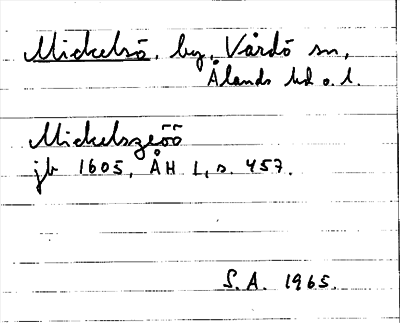 Mickelsö, by, Vårdö sn,
Ålands hd o. l.
Mickelszöö
jb 1605, ÅH 1, s. 457.
S.A. 1965.